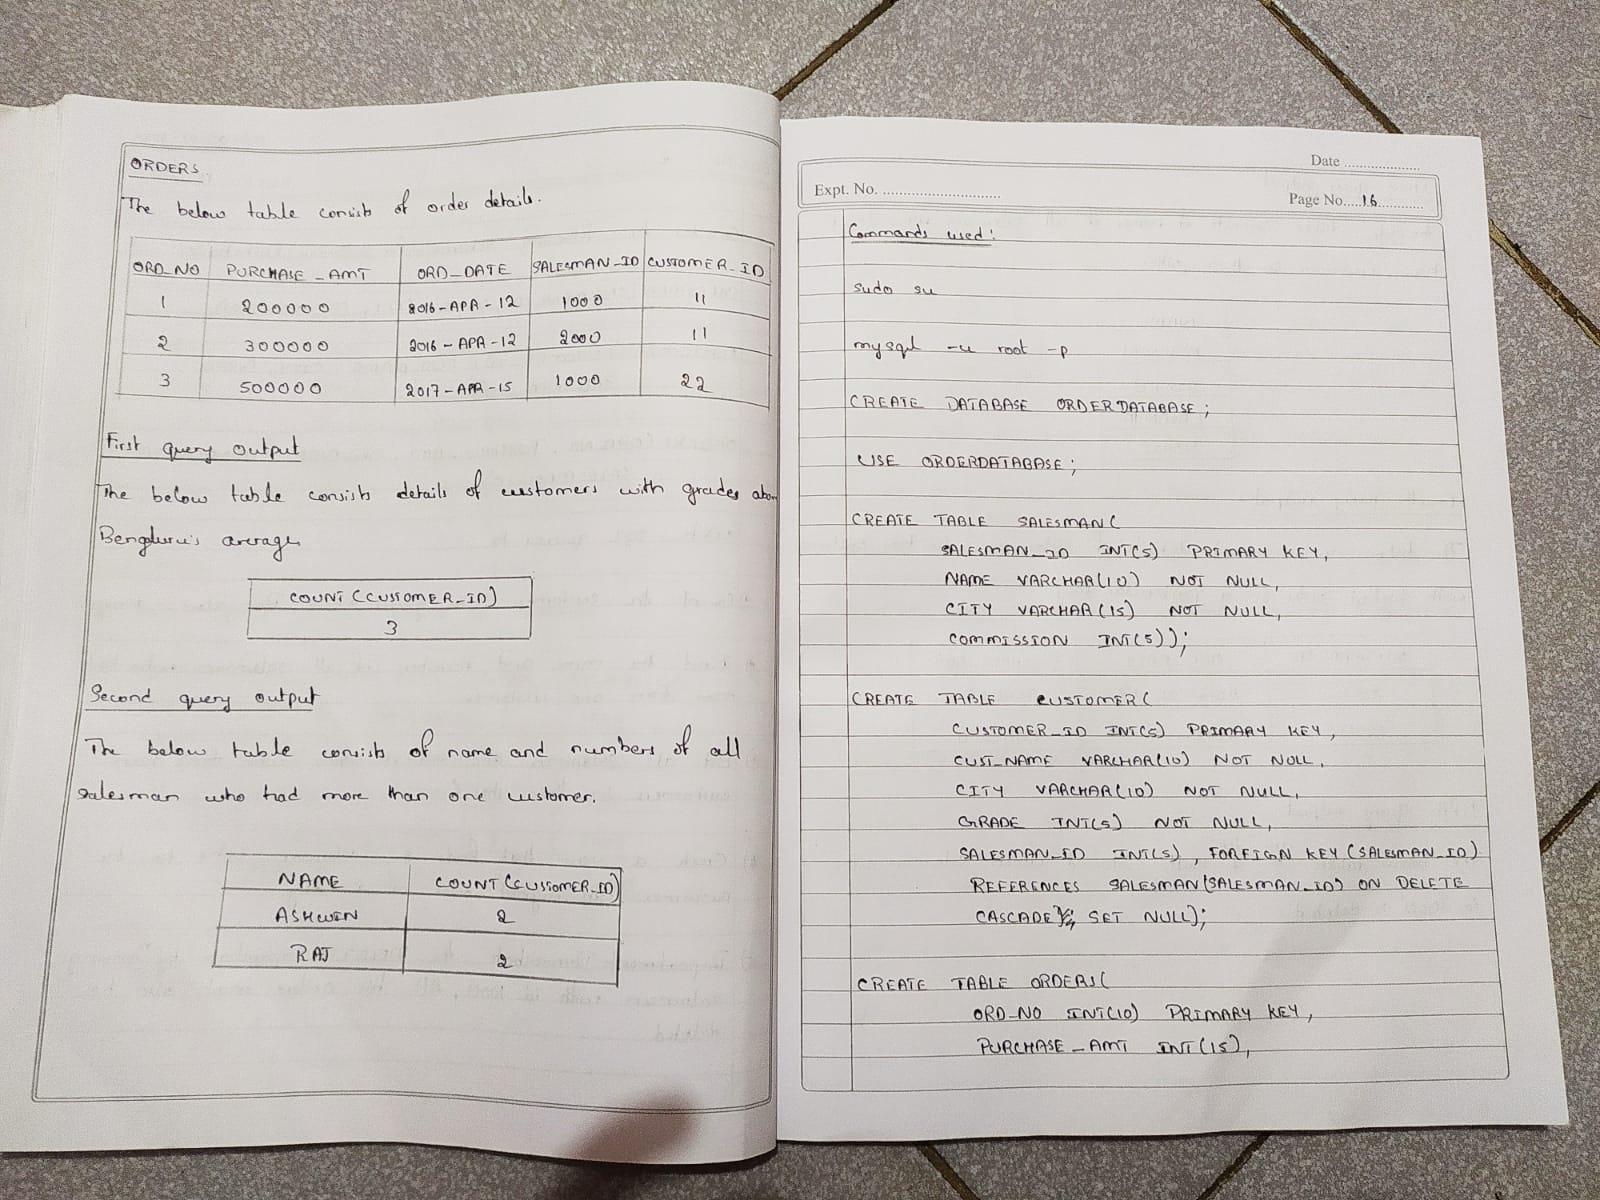 ORDERS
The below table consists of order details.
ORD_NO PURCHASE_AMT ORD_DATE SALESMAN_ID CUSTOMER_ID
1 200000 2016-APR-12 1000 11
2 300000 2016-APR-12 2000 11
3 500000 2017-APR-15 1000 22
First query output
The below table consists details of customers with grades above
Bengaluru's average
COUNT (CUSTOMER_ID)
3
Second query output
The below table consists of name and numbers of all
salesman who had more than one customer.
NAME COUNT (CUSTOMER_ID)
ASHWIN 2
RAJ 2
Date ....................
Expt. No. ...........................
Page No....16............
Commands used:
sudo su
mysql -u root -p
CREATE DATABASE ORDERDATABASE;
USE ORDERDATABASE;
CREATE TABLE SALESMAN(
SALESMAN_ID INT(5) PRIMARY KEY,
NAME VARCHAR(10) NOT NULL,
CITY VARCHAR(15) NOT NULL,
COMMISSION INT(5));
CREATE TABLE CUSTOMER(
CUSTOMER_ID INT(5) PRIMARY KEY,
CUST_NAME VARCHAR(10) NOT NULL,
CITY VARCHAR(10) NOT NULL,
GRADE INT(5) NOT NULL,
SALESMAN_ID INT(5), FOREIGN KEY (SALESMAN_ID)
REFERENCES SALESMAN(SALESMAN_ID) ON DELETE
CASCADE SET NULL);
CREATE TABLE ORDERS(
ORD_NO INT(10) PRIMARY KEY,
PURCHASE_AMT INT(15),